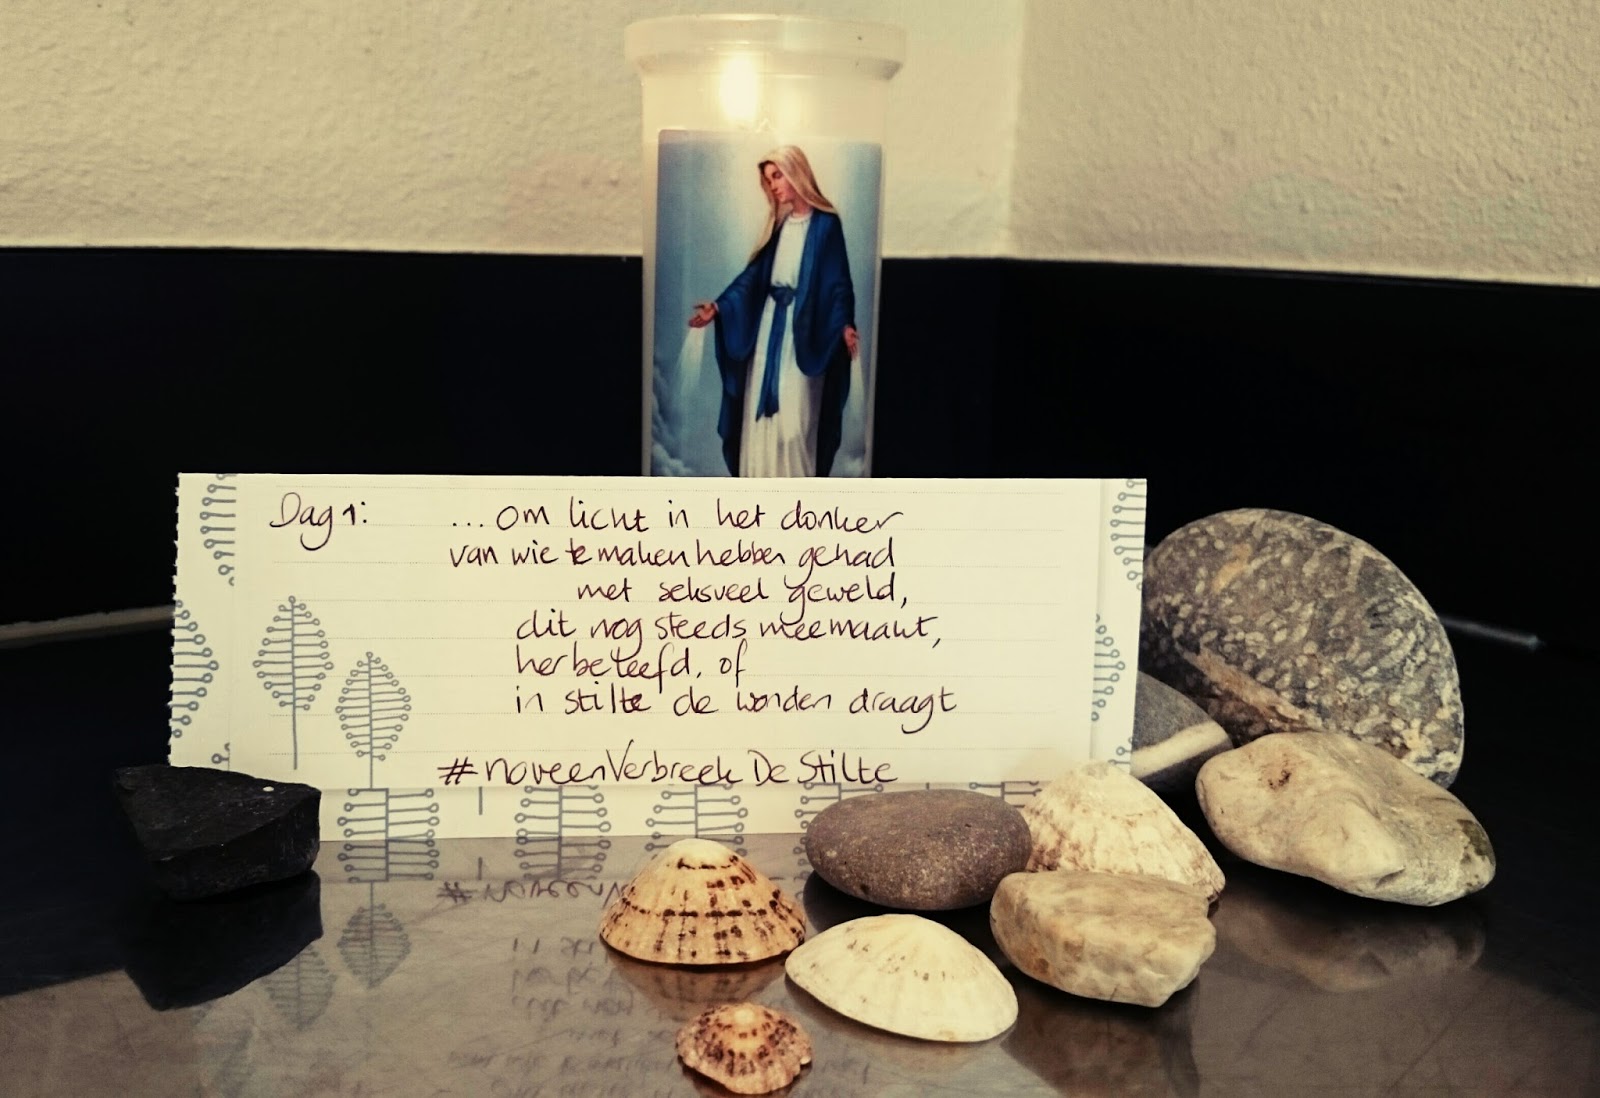 Dag 1: ... om licht in het donker
van wie te maken hebben gehad
met seksueel geweld,
dit nog steeds meemaakt,
herbeleefd, of
in stilte de wonden draagt
#noveenVerbreekDeStilte